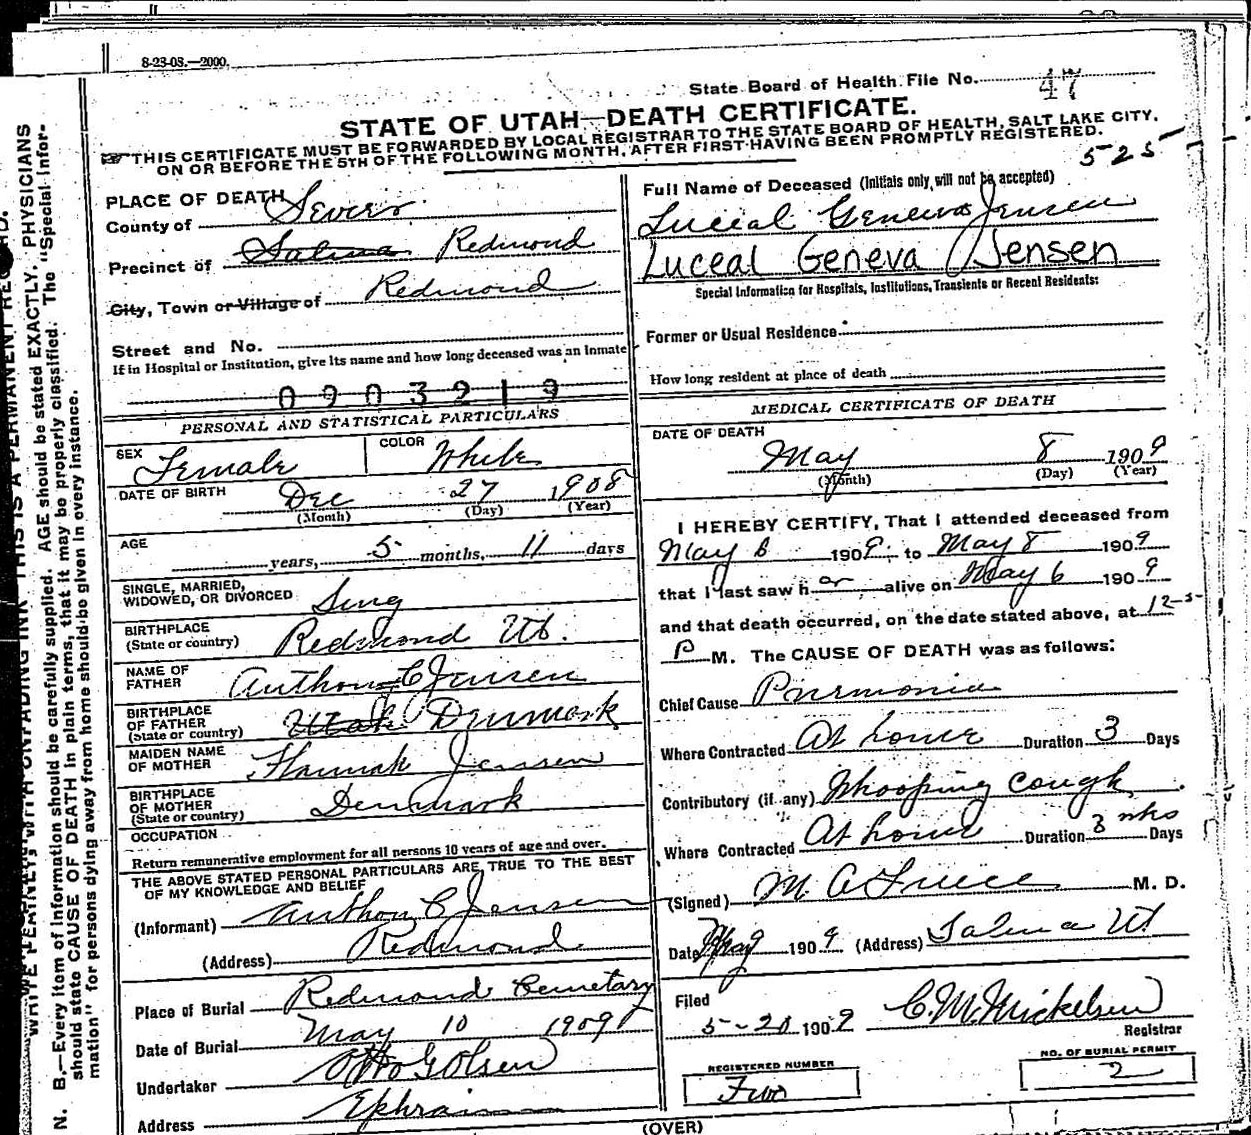 8-23-08.—2000.
State Board of Health File No. 47
STATE OF UTAH—DEATH CERTIFICATE.
THIS CERTIFICATE MUST BE FORWARDED BY LOCAL REGISTRAR TO THE STATE BOARD OF HEALTH, SALT LAKE CITY,
ON OR BEFORE THE 5TH OF THE FOLLOWING MONTH, AFTER FIRST HAVING BEEN PROMPTLY REGISTERED.
525
PLACE OF DEATH
County of Sevier
Precinct of Salina Redmond
City, Town or Village of Redmond
Street and No.
If in Hospital or Institution, give its name and how long deceased was an inmate
0903219
Full Name of Deceased (Initials only, will not be accepted)
Luceal Geneva Jensen
Luceal Geneva Jensen
Special Information for Hospitals, Institutions, Transients or Recent Residents:
Former or Usual Residence
How long resident at place of death
PERSONAL AND STATISTICAL PARTICULARS
SEX Female COLOR White
DATE OF BIRTH Dec 27 1908
(Month) (Day) (Year)
AGE years, 5 months, 11 days
SINGLE, MARRIED,
WIDOWED, OR DIVORCED Sing
BIRTHPLACE
(State or country) Redmond Ut.
NAME OF
FATHER Authon C Jensen
BIRTHPLACE
OF FATHER
(State or country) Utah Denmark
MAIDEN NAME
OF MOTHER Hannah Jensen
BIRTHPLACE
OF MOTHER
(State or country) Denmark
OCCUPATION
Return remunerative employment for all persons 10 years of age and over.
THE ABOVE STATED PERSONAL PARTICULARS ARE TRUE TO THE BEST
OF MY KNOWLEDGE AND BELIEF
(Informant) Authon C Jensen
(Address) Redmond
Place of Burial Redmond Cemetary
Date of Burial May 10 1909
Undertaker Otto G Olsen
Address Ephraim
MEDICAL CERTIFICATE OF DEATH
DATE OF DEATH
May 8 1909
(Month) (Day) (Year)
I HEREBY CERTIFY, That I attended deceased from
May 6 1909, to May 8 1909
that I last saw h er alive on May 6 1909
and that death occurred, on the date stated above, at 12-5-
P M. The CAUSE OF DEATH was as follows:
Chief Cause Purmonia
Where Contracted At home Duration 3 Days
Contributory (if any) Whooping cough
Where Contracted At home Duration 3 wks Days
(Signed) M. D.
Date May 1909 (Address) Salina Ut
Filed
5-20 1909 C. M. Mickelsen
Registrar
REGISTERED NUMBER
Two
NO. OF BURIAL PERMIT
2
(OVER)
WRITE PLAINLY, WITH UNFADING INK THIS IS A PERMANENT RECORD.
N. B.—Every item of information should be carefully supplied. AGE should be stated EXACTLY. PHYSICIANS
should state CAUSE OF DEATH in plain terms, that it may be properly classified. The "Special Infor-
mation" for persons dying away from home should be given in every instance.